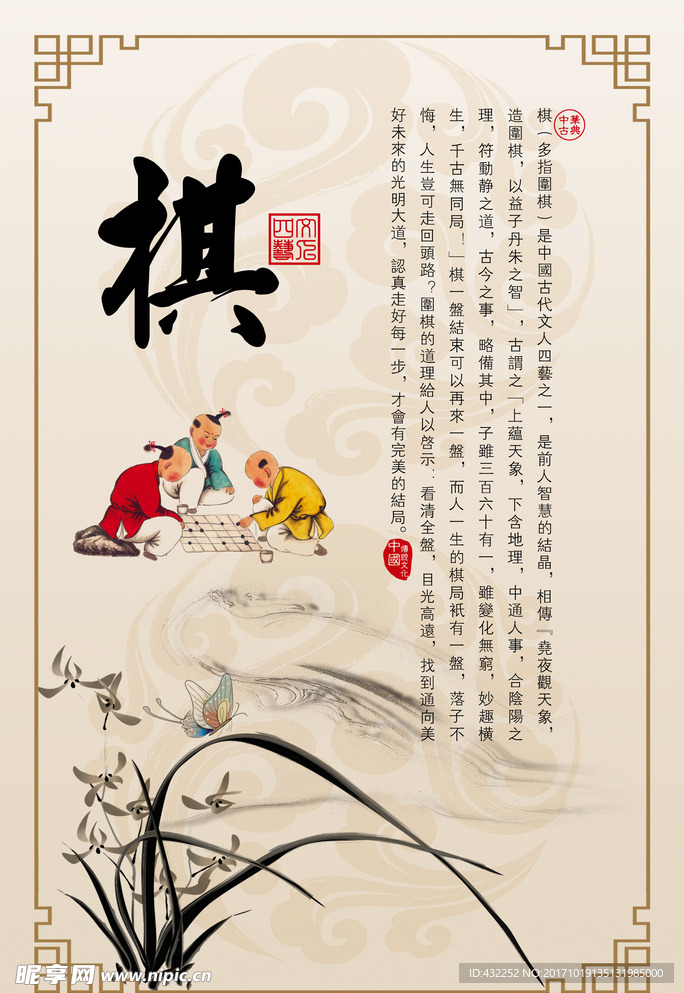 棋
文化
四藝
中華
古典
棋（多指圍棋）是中國古代文人四藝之一，是前人智慧的結晶，相傳『堯夜觀天象，
造圍棋，以益子丹朱之智」，古謂之「上蘊天象，下含地理，中通人事，合陰陽之
理，符動静之道，古今之事，略備其中，子雖三百六十有一，雖變化無窮，妙趣横
生，千古無同局！」棋一盤結束可以再來一盤，而人一生的棋局衹有一盤，落子不
悔，人生豈可走回頭路？圍棋的道理給人以啓示：看清全盤，目光高遠，找到通向美
好未來的光明大道，認真走好每一步，才會有完美的結局。
傳統文化
中國
昵享网 www.nipic.cn
ID:432252 NO:20171019135131985000